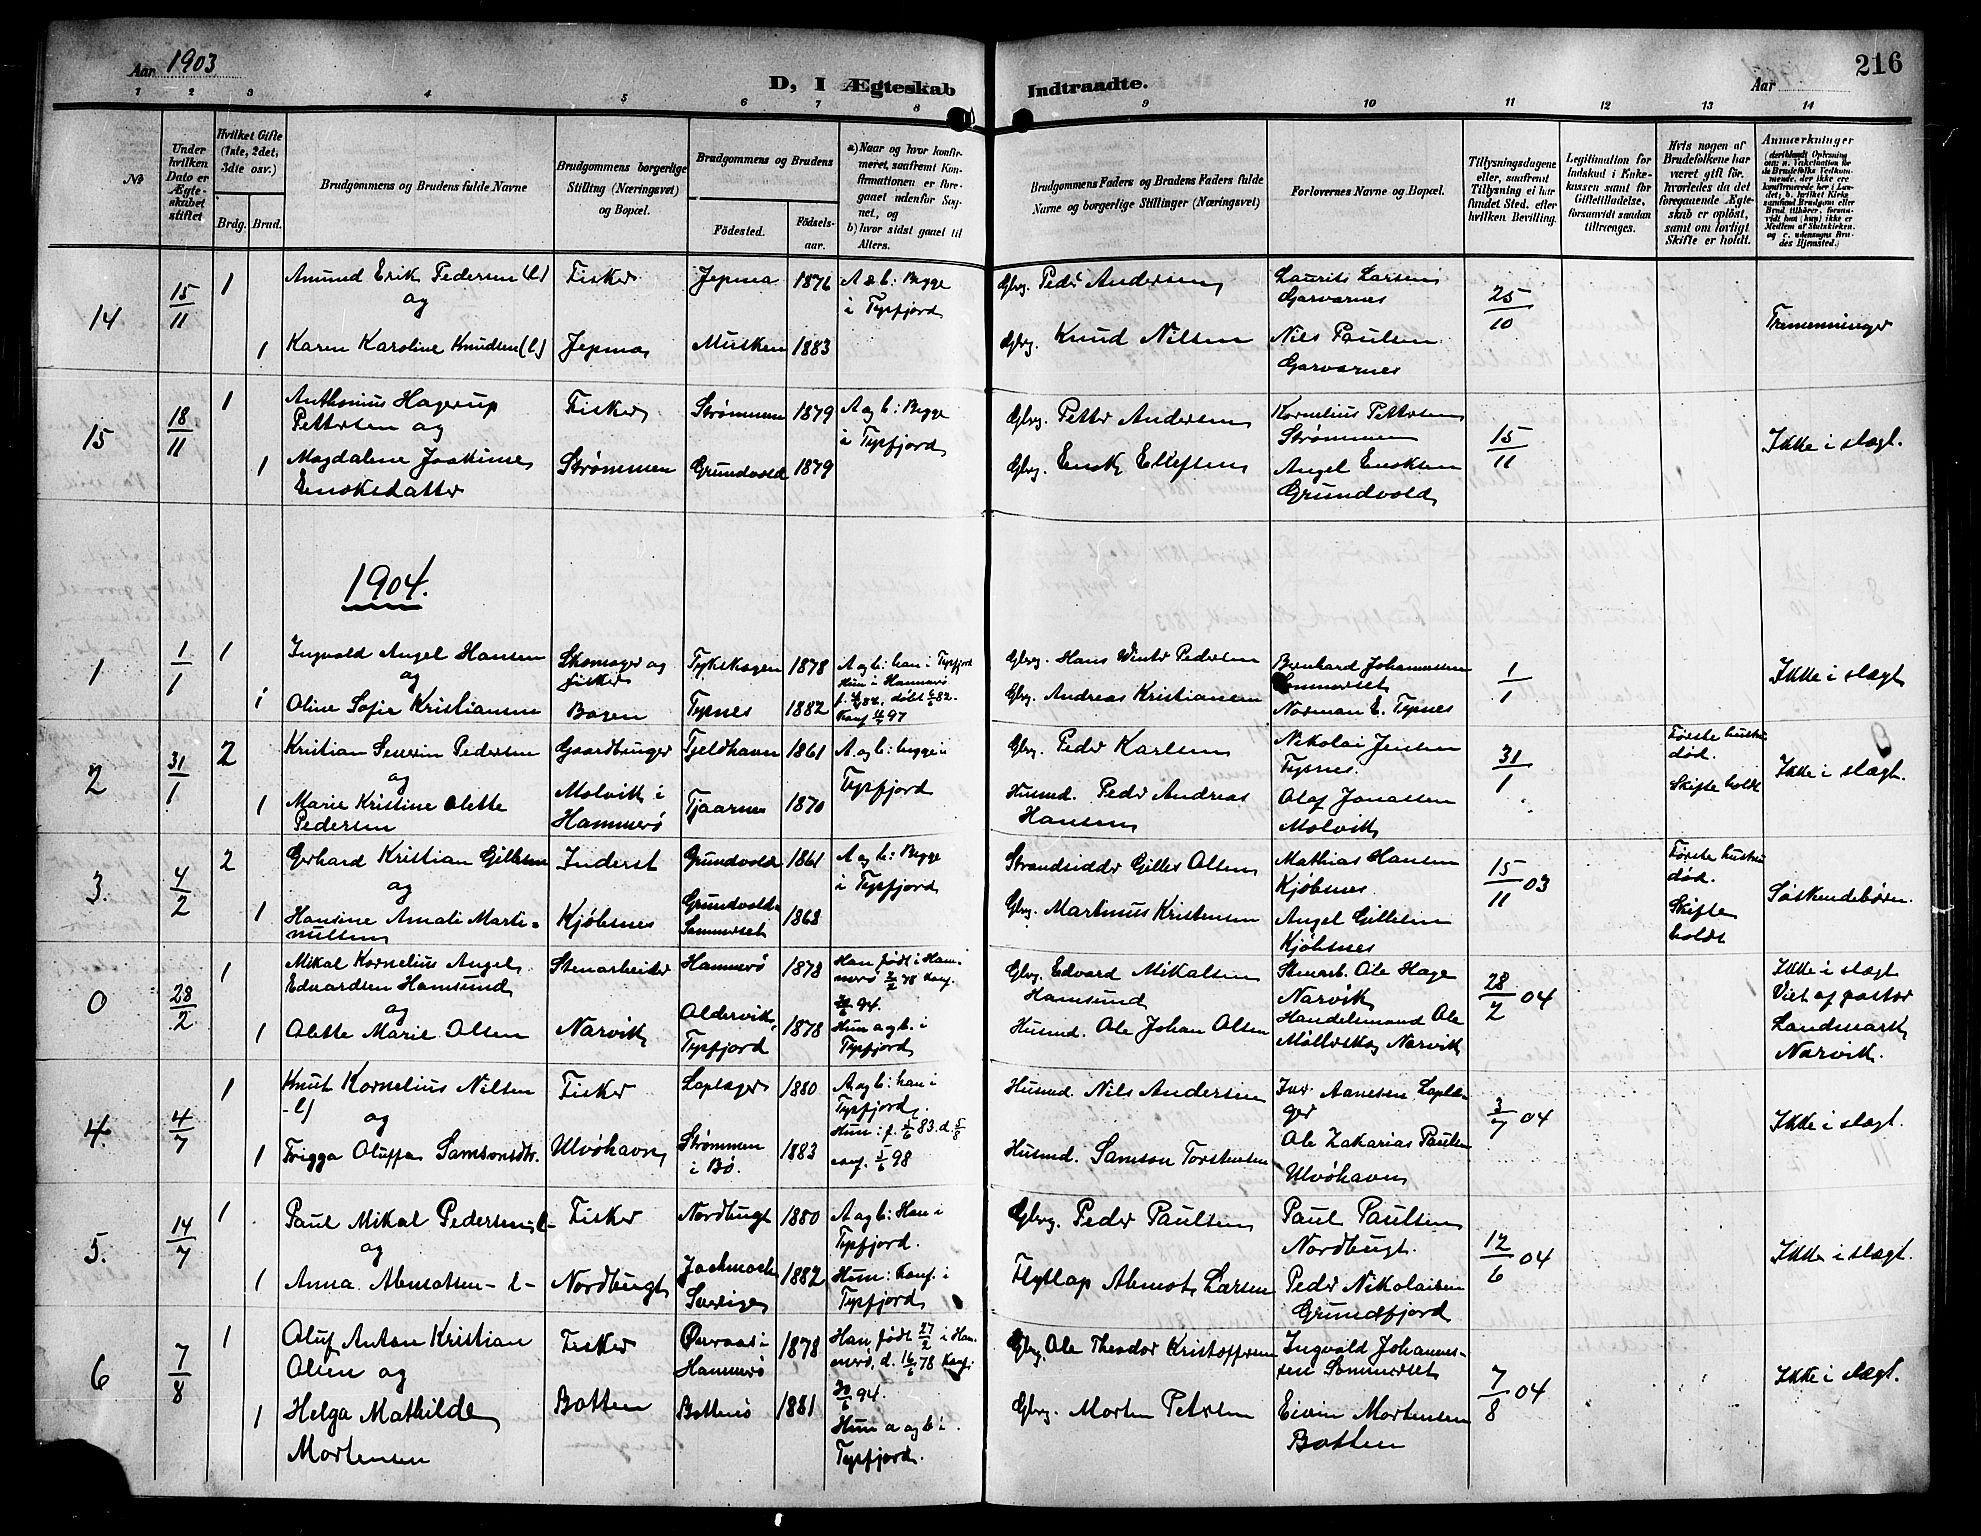 Aar 1903
D, I Ægteskab Indtraadte.
Aar
216
1 2 3 4 5 6 7 8 9 10 11 12 13 14
№
Under hvilken Dato er Ægteskabet stiftet
Hvilket Gifte (1ste, 2det, 3die osv.)
Brdg. Brud.
Brudgommens og Brudens fulde Navne
Brudgommens borgerlige Stilling (Næringsvei) og Bopæl.
Brudgommens og Brudens
Fødested. Fødselsaar.
a) Naar og hvor konfirmeret, saafremt Konfirmationen er foregaaet udenfor Sognet, og
b) hvor sidst gaaet til Alters.
Brudgommens Faders og Brudens Faders fulde Navne og borgerlige Stillinger (Næringsvei)
Forlovernes Navne og Bopæl.
Tillysningsdagene eller, saafremt Tillysning ei har fundet Sted, efter hvilken Bevilling.
Legitimation for Indskud i Enkekassen samt for Giftetilladelse, forsaavidt saadan tiltrænges.
Hvis nogen af Brudefolkene har været gift før, hvorledes da det foregaaende Ægteskab er opløst, samt om lovligt Skifte er holdt.
Anmærkninger
14
15/11
1
Amund Erik Pedersen (l)
og
1 Karen Karoline Knudsen (l)
Fisker
Jepma
Jepma 1876
Musken 1883
A & b: Begge
i Tysfjord
Gbrg. Peder Andersen
Gbrg. Knud Nilsen
Laurits Larsen
Garvarnes
Nils Paulsen
Garvarnes
25/10
Tremenninger
15
18/11
1
Anthonius Hagerup
Pettersen og
1 Magdalene Joakime
Enoksdatter
Fisker
Strømmen
Strømmen 1879
Grundvold 1879
A og b: Begge
i Tysfjord
Gbrg. Petter Andersen
Gbrg. Enok Ellefsen
Kornelius Pettersen
Strømmen
Angel Enoksen
Grundvold
15/11
Ikke i slægt.
1904.
1
1/1
1
Ingvald Angel Hansen
og
1 Oline Sofie Kristiansen
Skomager og
fisker
Bogen
Tykskogen 1878
Tysnes 1882
A og b: han i Tysfjord
Hun i Hammerø
Gbrg. Hans Winter Pedersen
Gbrg. Andreas Kristiansen
Bernhard Johannessen
Sommerset
Norman E. Tysnes
1/1
Ikke i slægt
2
31/1
2
Kristian Severin Pedersen
og
1 Marie Kristine Olette
Pedersen
Gaardbruger
Molvik i
Hammerø
Tjeldhavn 1861
Tjaarnes 1870
A. og b: begge i
Tysfjord
Gbrg. Peder Karlsen
Husmd. Peder Andreas
Hansen
Nikolai Jensen
Tysnes.
Olaf Jonassen
Molvik
31/1
Første hustru
død.
Skifte holdt
Ikke i slægt.
3.
4/2
2
Gerhard Kristian Gillesen
og
1 Hansine Amalie Marti-
nussen
Inderst
Kjøbsnes
Grundvold 1861
Grundvold-
Sommerset 1868
A og b: Begge
i Tysfjord
Strandsidder Gilles Olsen
Gbrg. Martinus Kristensen
Mathias Hansen
Kjøbsnes.
Angel Gillesen
Kjøbsnes
15/11 03
Første hustru
død.
Skifte
holdt
Søskendebørn.
0
28/2
1
Mikal Kornelius Angel
Edvardsen Hamsund
og
1 Olette Marie Olsen
Stenarbeider
Narvik
Hammerø 1878
Oldervik, 1878
Tysfjord
Han født i Ham-
merø 2/2 78 Konf.
94.
Hun a og b. i
Tysfjord
Gbrg. Edvard Mikalsen
Hamsund
Husmd. Ole Johan Olsen
Stenarb. Ole Hage
Narvik
Handelsmand Ole
Narvik
28/2 04
Ikke i slægt
Viet af pastor
Landmark
Narvik.
4.
4/7
1
Knut Kornelius Nilsen
-l)
og
1 Frigga Oluffa Samsonsdtr.
Fisker
Ulvøhavn
Laplæger 1880
Strømmen 1883
i Bø.
A. og b: han i
Tysfjord.
Hun: f. 83. d.
conf. 98
Husmd. Nils Andersen
Husmd. Samson Torstensen
Aanesen Laplæ-
ger
Ole Zakarias Paulsen
Ulvøhavn
3/7 04
Ikke i slægt.
5.
14/7
1
Paul Mikal Pedersen -l-
og
1 Anna Abmotsen -l-
Fisker
Nordbugt
Nordbugt 1880
Jockmock 1882
Sverige
A og b: Han i
Tysfjord.
Hun: Konf. i
Tysfjord
Gbrg. Peder Paulsen
Flytlap Abmot Larsen
Paul Paulsen
Nordbugt.
Peder Nikolaisen
Grundfjord
12/6 04
Ikke i slægt.
6
7/8
1
Oluf Anton Kristian
Olsen og
1 Helga Mathilde
Mortensen
Fisker
Botten
i 1878
Hammerø
Botten 1881
Han født 27/2 i Ham-
merø, d. 16/6 78 Konf.
94.
Hun a og b i
Tysfjord.
Gbrg. Ole Theodor Kristoffersen
Gbrg. Morten Petersen
Ingvald Johannes-
sen Sommerset
Eivin Mortensen
Botten
7/8 04
Ikke i slægt.